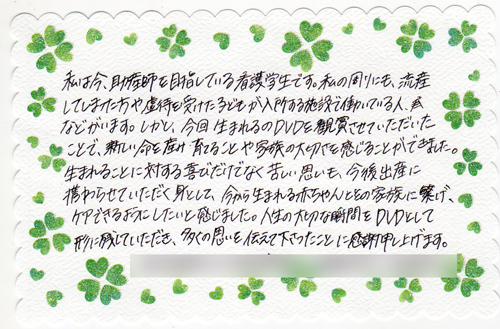 私は今、助産師を目指している看護学生です。私の周りにも、流産
してしまった方や虐待を受けた子どもが入所する施設で働いている人
などがいます。しかし、今回生まれるのDVDを観賞させていただいた
ことで、新しい命を産み育てることや家族の大切さを感じることができました。
生まれることに対する喜びだけでなく苦しい思いも、今後出産に
携わらせていただく身として、今から生まれる赤ちゃんとその家族に繋げ、
ケアできるようにしたいと感じました。人生の大切な瞬間をDVDとして
形に残していただき、多くの思いを伝えて下さったことに感謝申し上げます。